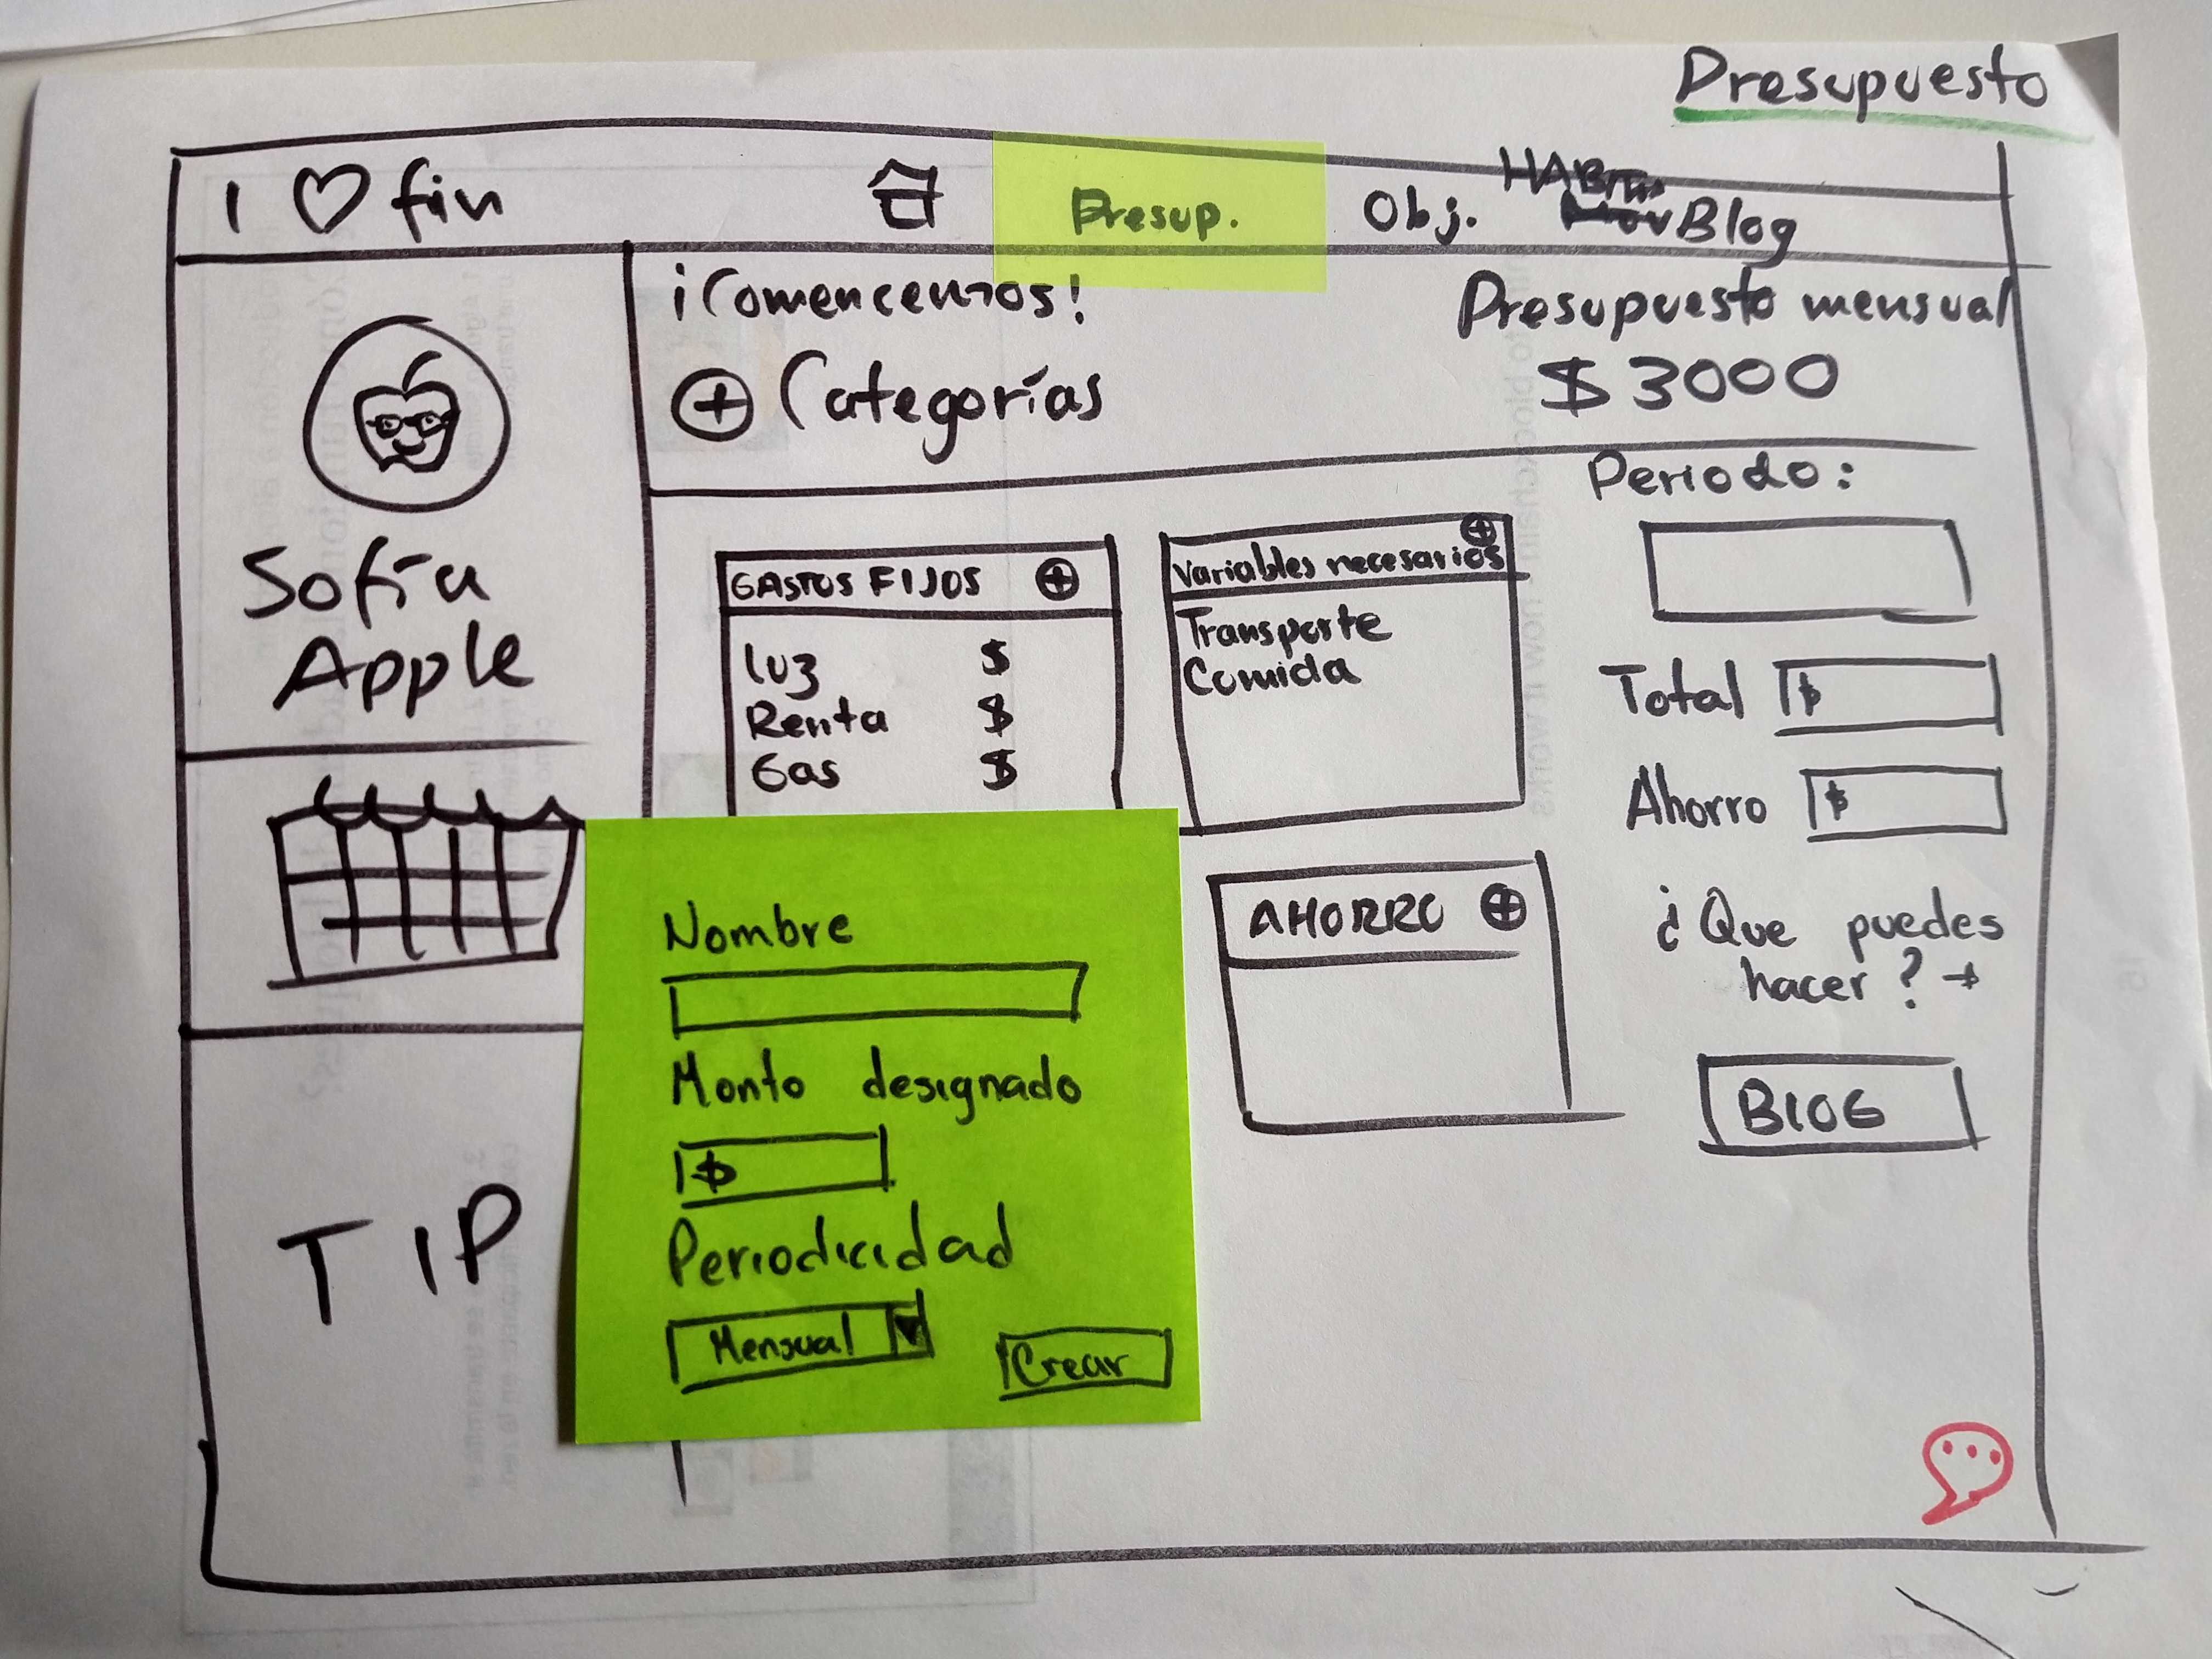 Presupuesto
I ♡ fin
Presup.
Obj.
HABITOS
Blog
¡Comencemos!
Presupuesto mensual
+ Categorías
$ 3000
Sofía
Apple
GASTOS FIJOS +
luz $
Renta $
Gas $
+
Variables necesarios
Transporte
Comida
Periodo:
Total $
Ahorro $
AHORRO +
¿Que puedes
hacer? →
BLOG
TIP
Nombre
Monto designado
$
Periodicidad
Mensual
Crear